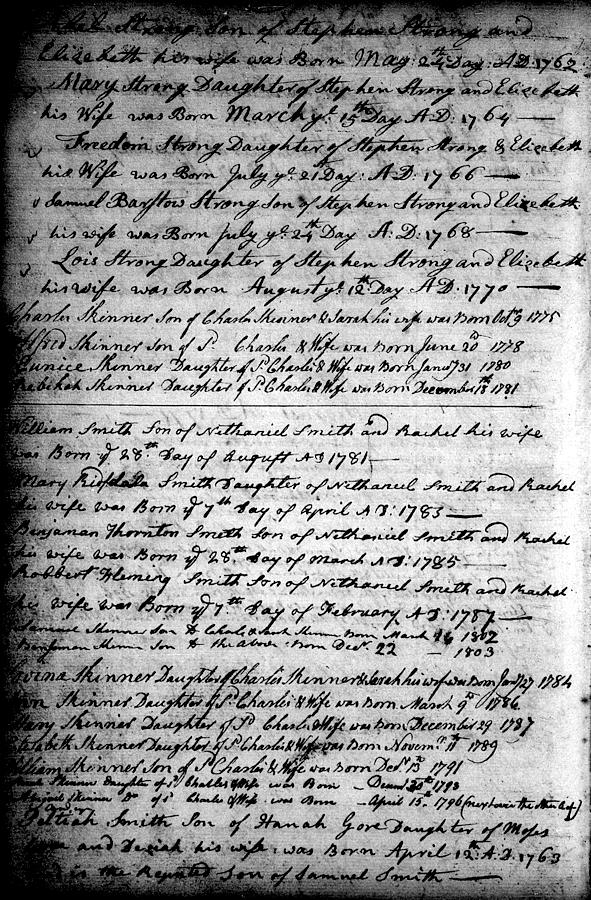 Strong Son of Stephen Strong and
Elizabeth his wife was Born May: 24th Day: A:D: 1762
Mary Strong Daughter of Stephen Strong and Elizebeth
his Wife was Born March ye 15th Day A:D: 1764 —
Freedom Strong Daughter of Stephen Strong & Elizebeth
his Wife was Born July ye: 21 Day: A:D: 1766 —
Samuel Barstow Strong Son of Stephen Strong and Elizebeth
his wife was Born July ye: 24th Day A:D: 1768 —
Lois Strong Daughter of Stephen Strong and Elizebeth
his Wife was Born August ye: 12th Day A:D: 1770 —
Charles Skinner Son of Charles Skinner & Sarah his wife was Born Octr 9 1775
Alfred Skinner Son of Sd. Charles & Wife was Born June 20 1778
Eunice Skinner Daughter of Sd. Charles & Wife was Born Janry 31 1780
Skinner Daughter of Sd. Charles & Wife was Born December 18th 1781
William Smith Son of Nethaniel Smith and Rachel his wife
was Born ye 28th Day of August AD 1781 —
Mary Smith Daughter of Nethaniel Smith and Rachel
his wife was Born ye 7th Day of April AD: 1783 —
Benjaman Thornton Smith Son of Nethaniel Smith and Rachel
his wife was Born ye 28th Day of March AD: 1785 —
Robbert Flemeng Smith Son of Nethaniel Smith and Rachel
his wife was Born ye 7th Day of February AD: 1787 —
Samuel Skinner Son to Charls & Skinner Born March 1802
Benjaman Skinner Son to the above Born Decr. 22 — 1803
Skinner Daughter of Charles Skinner & Sarah his wife was Born Janry 27 1784
Skinner Daughter of Sd. Charles & Wife was Born March 9th 1786
Mary Skinner Daughter of Sd Charles & Wife was Born December 29 1787
Elizabeth Skinner Daughter of Sd. Charles & Wife was Born Novemr. 11th 1789
William Skinner Son of Sd Charles & Wife was Born Decr. 13th 1791
Skinner Daughter of sd Charles & Wife was Born — 20th 1793
Abigail Skinner Dr of sd Charles & Wife was Born — April 15th 1796 (next over the other leaf)
Smith Son of Hanah Gore Daughter of Moses
and his wife: was Born April 12th: A:D: 1763
is the Reputed Son of Samuel Smith —